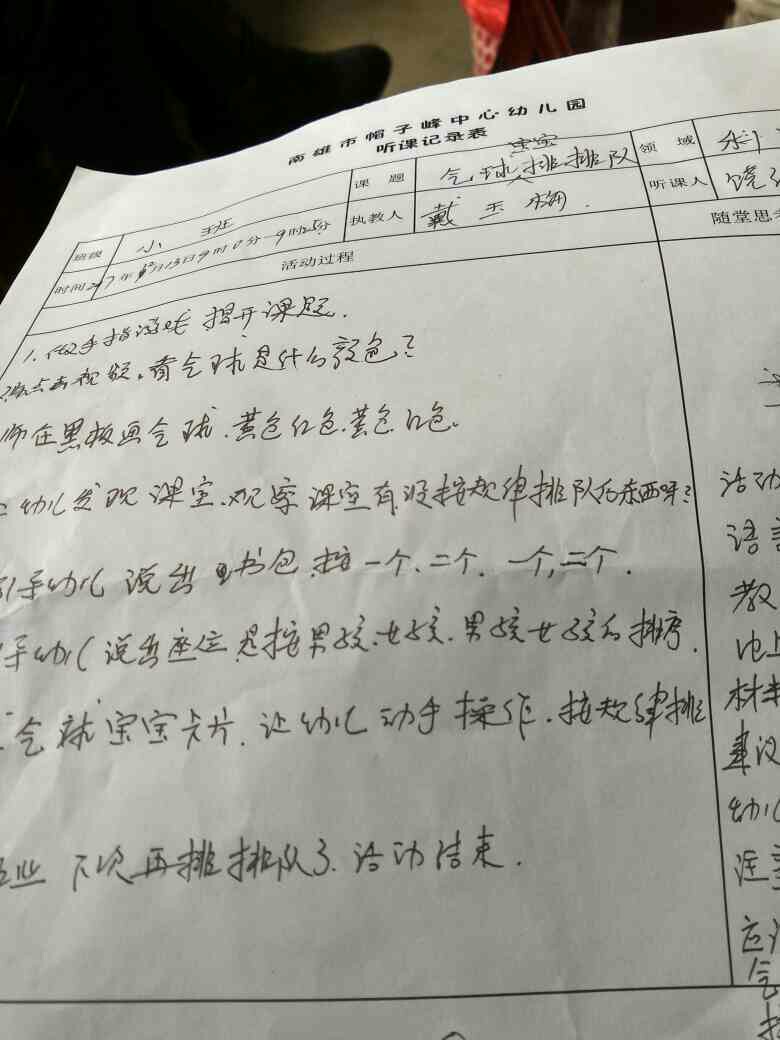 南雄市帽子峰中心幼儿园
听课记录表
班级 小班 课题 气球宝宝排排队 领域 科
时间 2017年 月13日9时0分-9时25分 执教人 戴玉梅 听课人 饶
活动过程 随堂思考
1. 做手指游戏 揭开课题.
点击视频,看气球是什么颜色?
师在黑板画气球.黄色红色.黄色红色。
幼儿发现课室.观察课室有没按规律排队的东西呀?
引导幼儿说出书包.按一个、二个、一个,二个.
导幼儿说出座位是按男孩.女孩.男孩女孩的排序.
气球宝宝卡片.让幼儿动手操作.按规律排
下次再排排队了.活动结束.
活动
语言
教
地上
材料
建议
幼儿
应
气